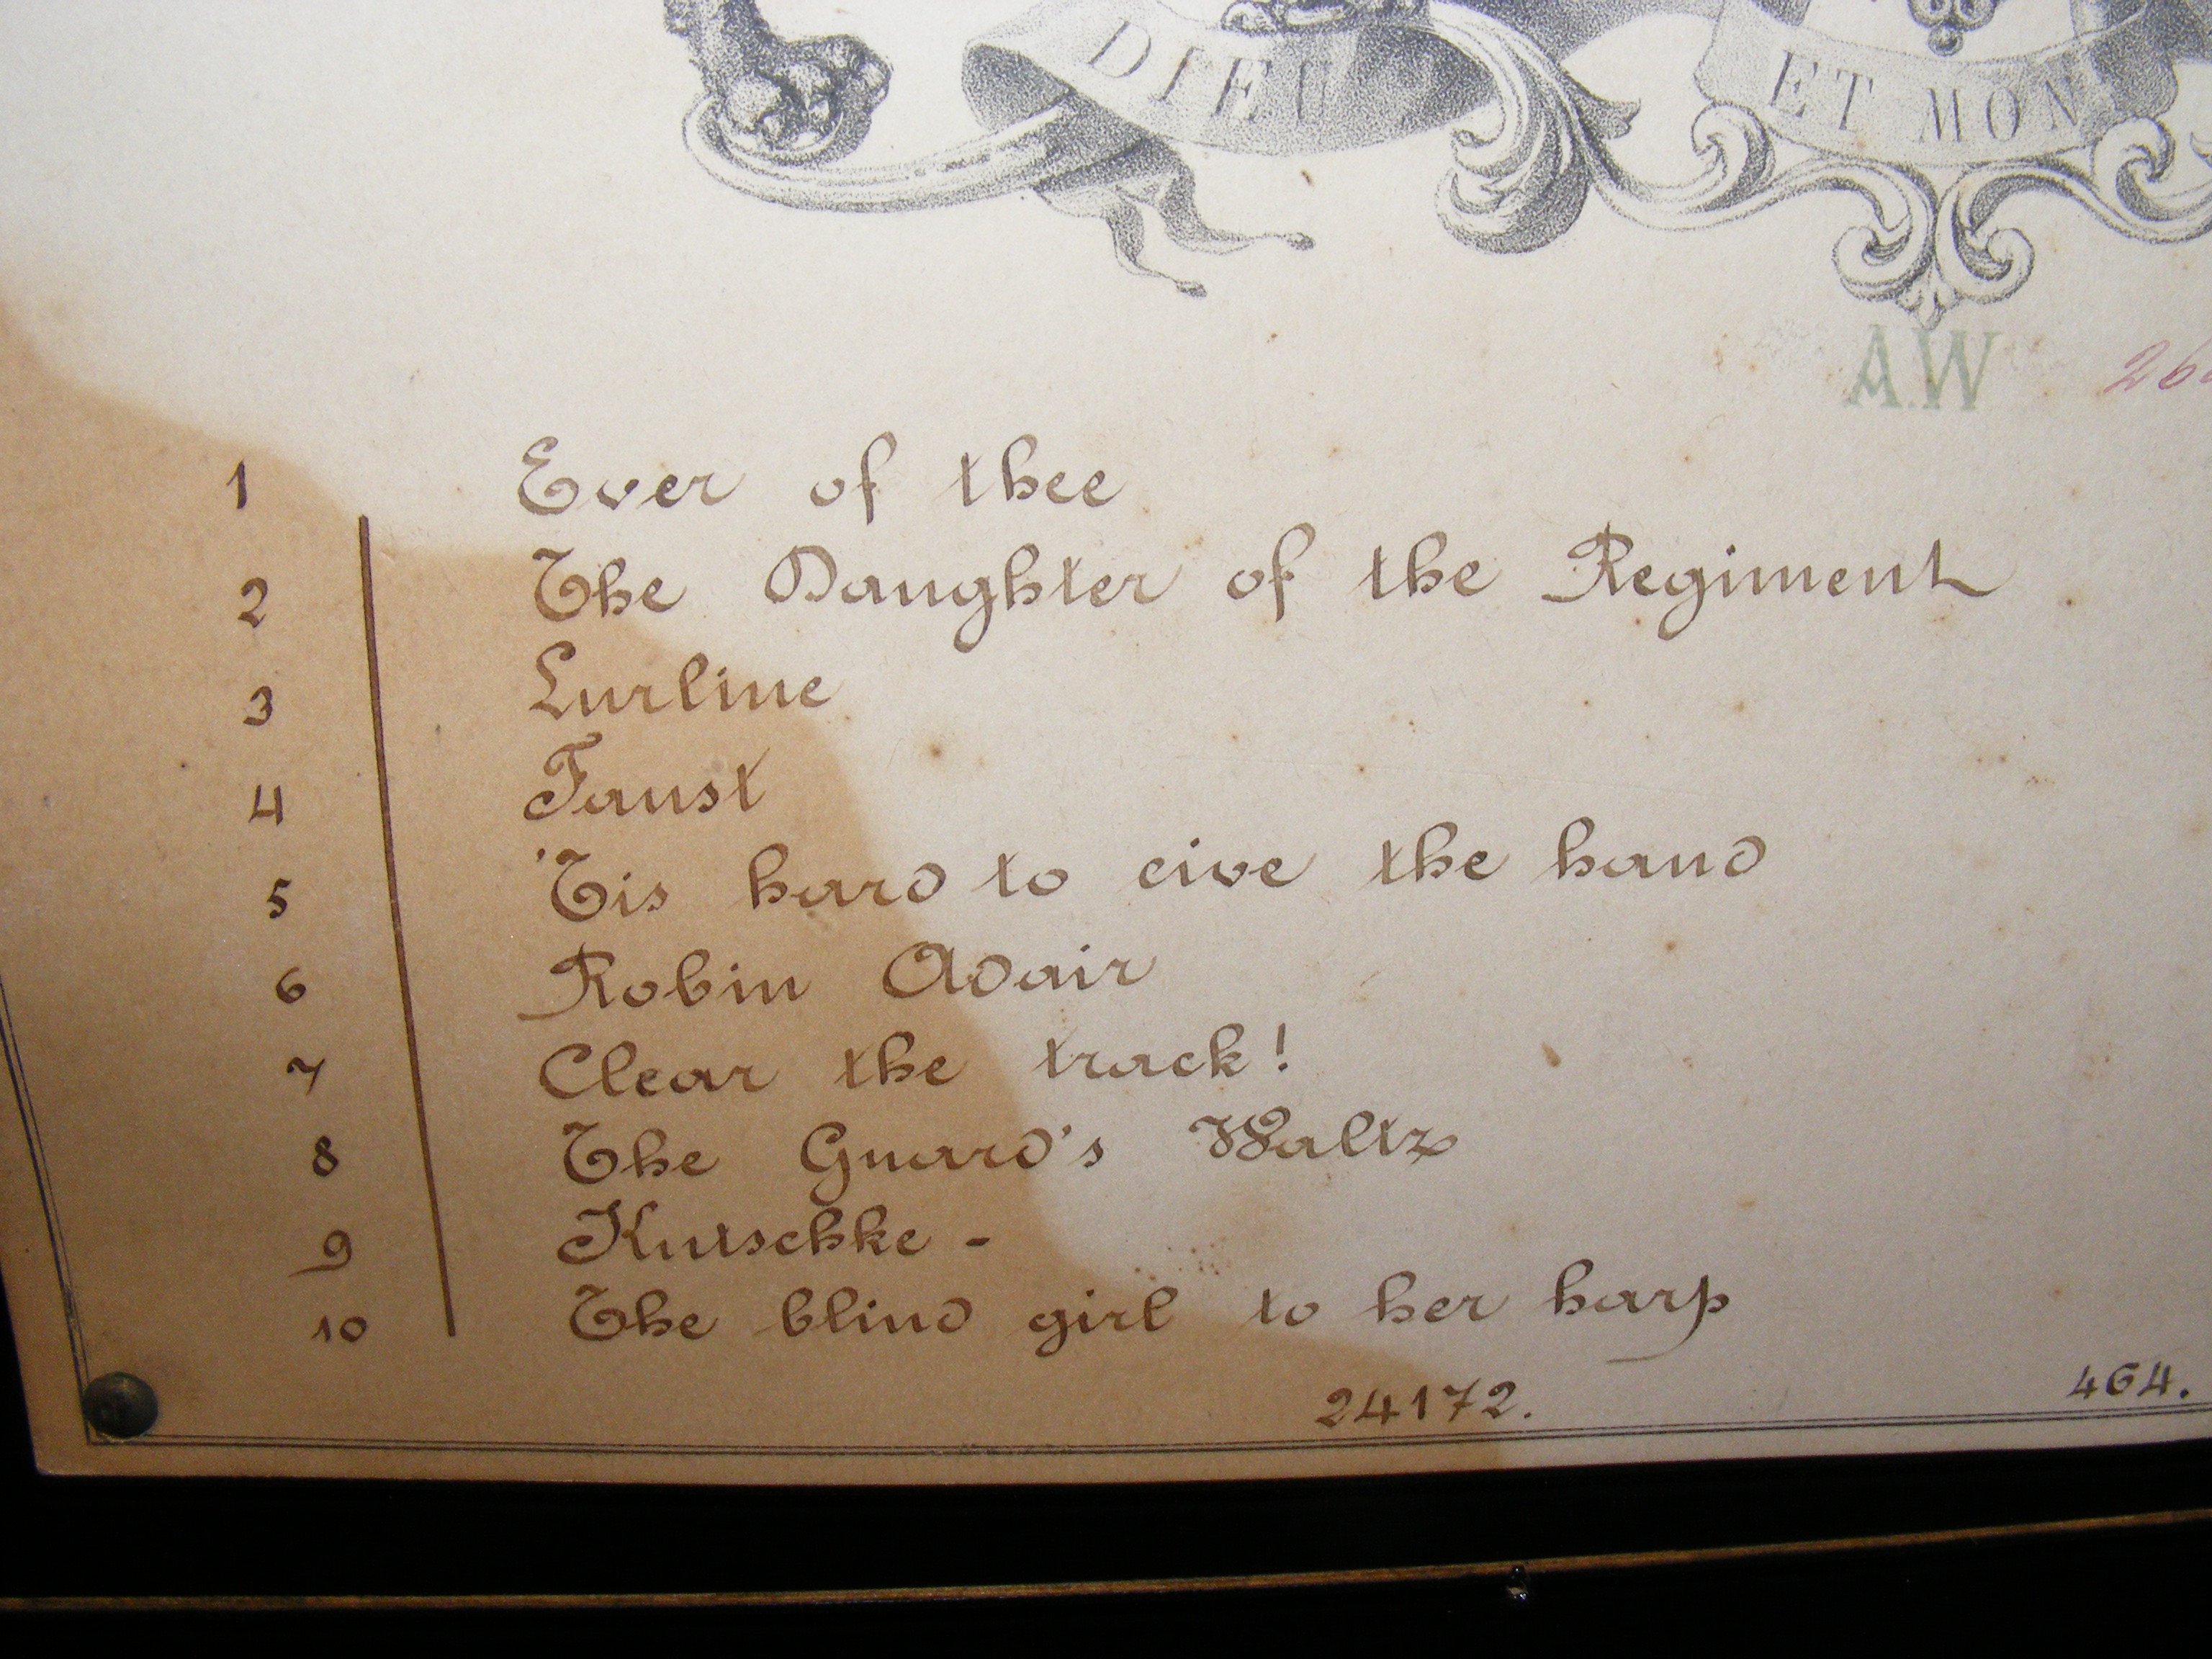 DIEU ET MON
A.W 26
1 Ever of thee
2 The Daughter of the Regiment
3 Lurline
4 Faust
5 'Tis hard to eive the hand
6 Robin Adair
7 Clear the track!
8 The Guard's Waltz
9 Kutschke -
10 The blind girl to her harp
24172. 464.